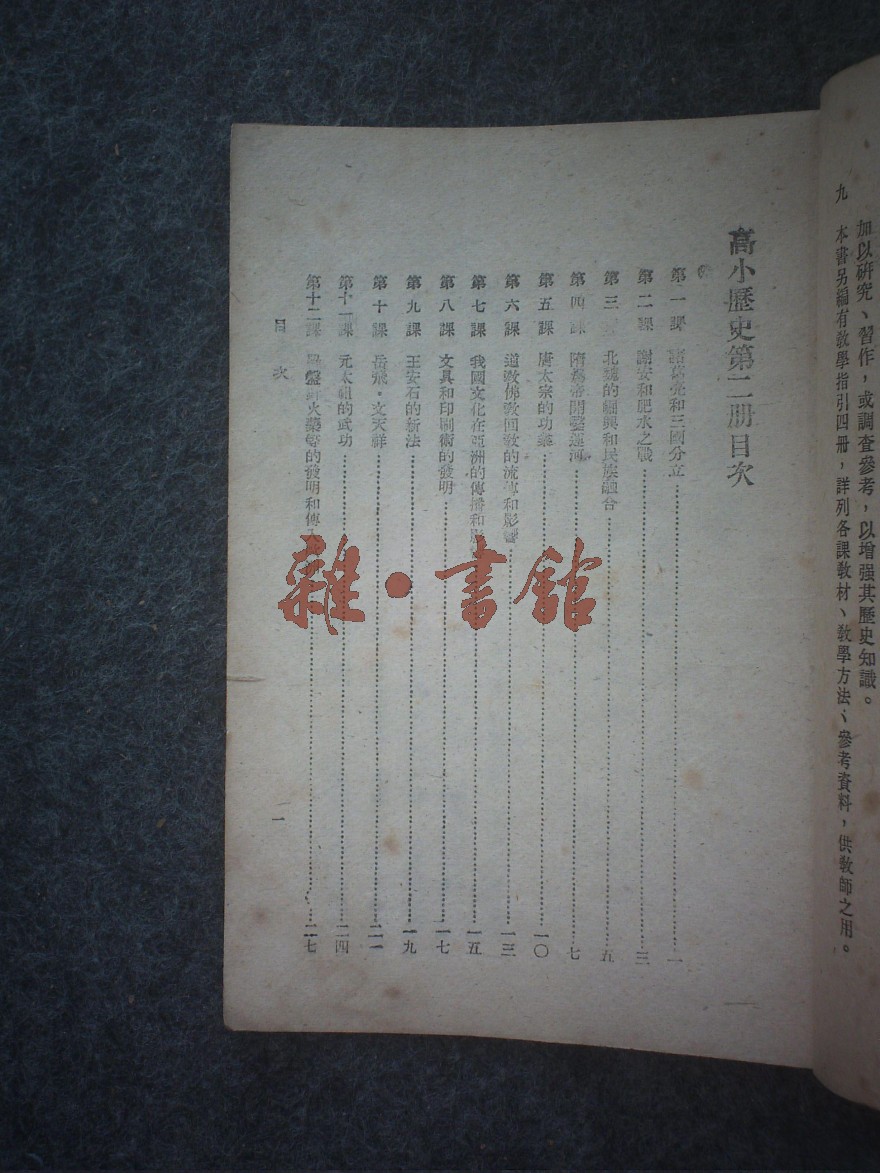 加以研究、習作，或調查參考，以增强其歷史知識。
九 本書另編有教學指引四冊，詳列各課教材、教學方法、參考資料，供教師之用。
高小歷史第二册目次
第一課 諸葛亮和三國分立 一
第二課 謝安和肥水之戰 三
第三 北魏的崛興和民族融合 五
第四課 隋煬帝開鑿運河 七
第五課 唐太宗的功業 一〇
第六課 道教佛教回教的流傳和影響 一三
第七課 我國文化在亞洲的傳播和影 一五
第八課 文具和印刷術的發明 一七
第九課 王安石的新法 一九
第十課 岳飛·文天祥 二一
第十一課 元太祖的武功 二四
第十二課 盤針火藥等的發明和傳 二七
目次 一
雜·書館